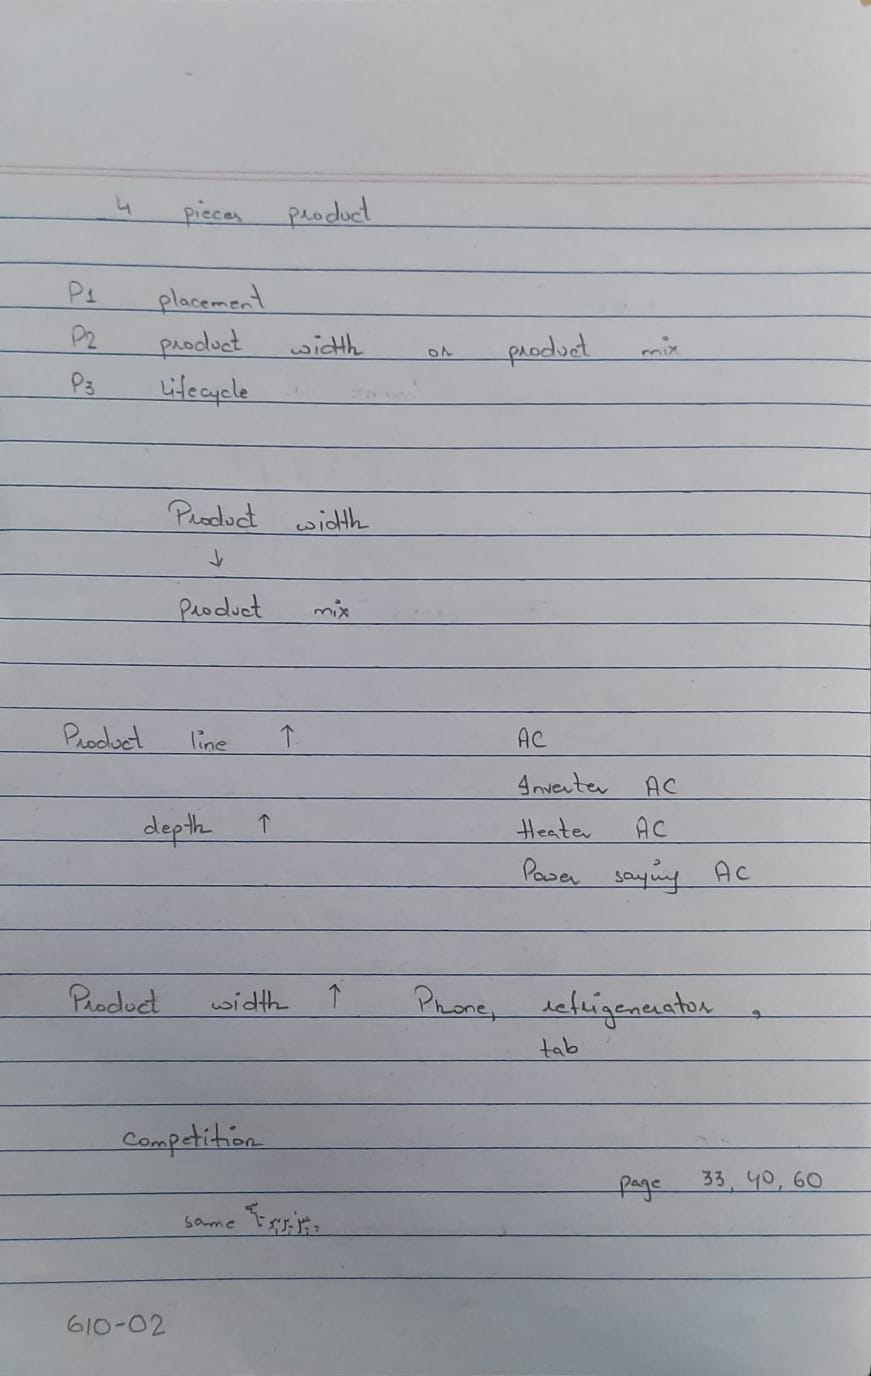 4 pieces product
P1 placement
P2 product width or product mix
P3 Lifecycle
Product width
↓
product mix
Product line ↑ AC
Inverter AC
depth ↑ Heater AC
Power saying AC
Product width ↑ Phone, refrigenerator,
tab
Competition
page 33, 40, 60
same
610-02